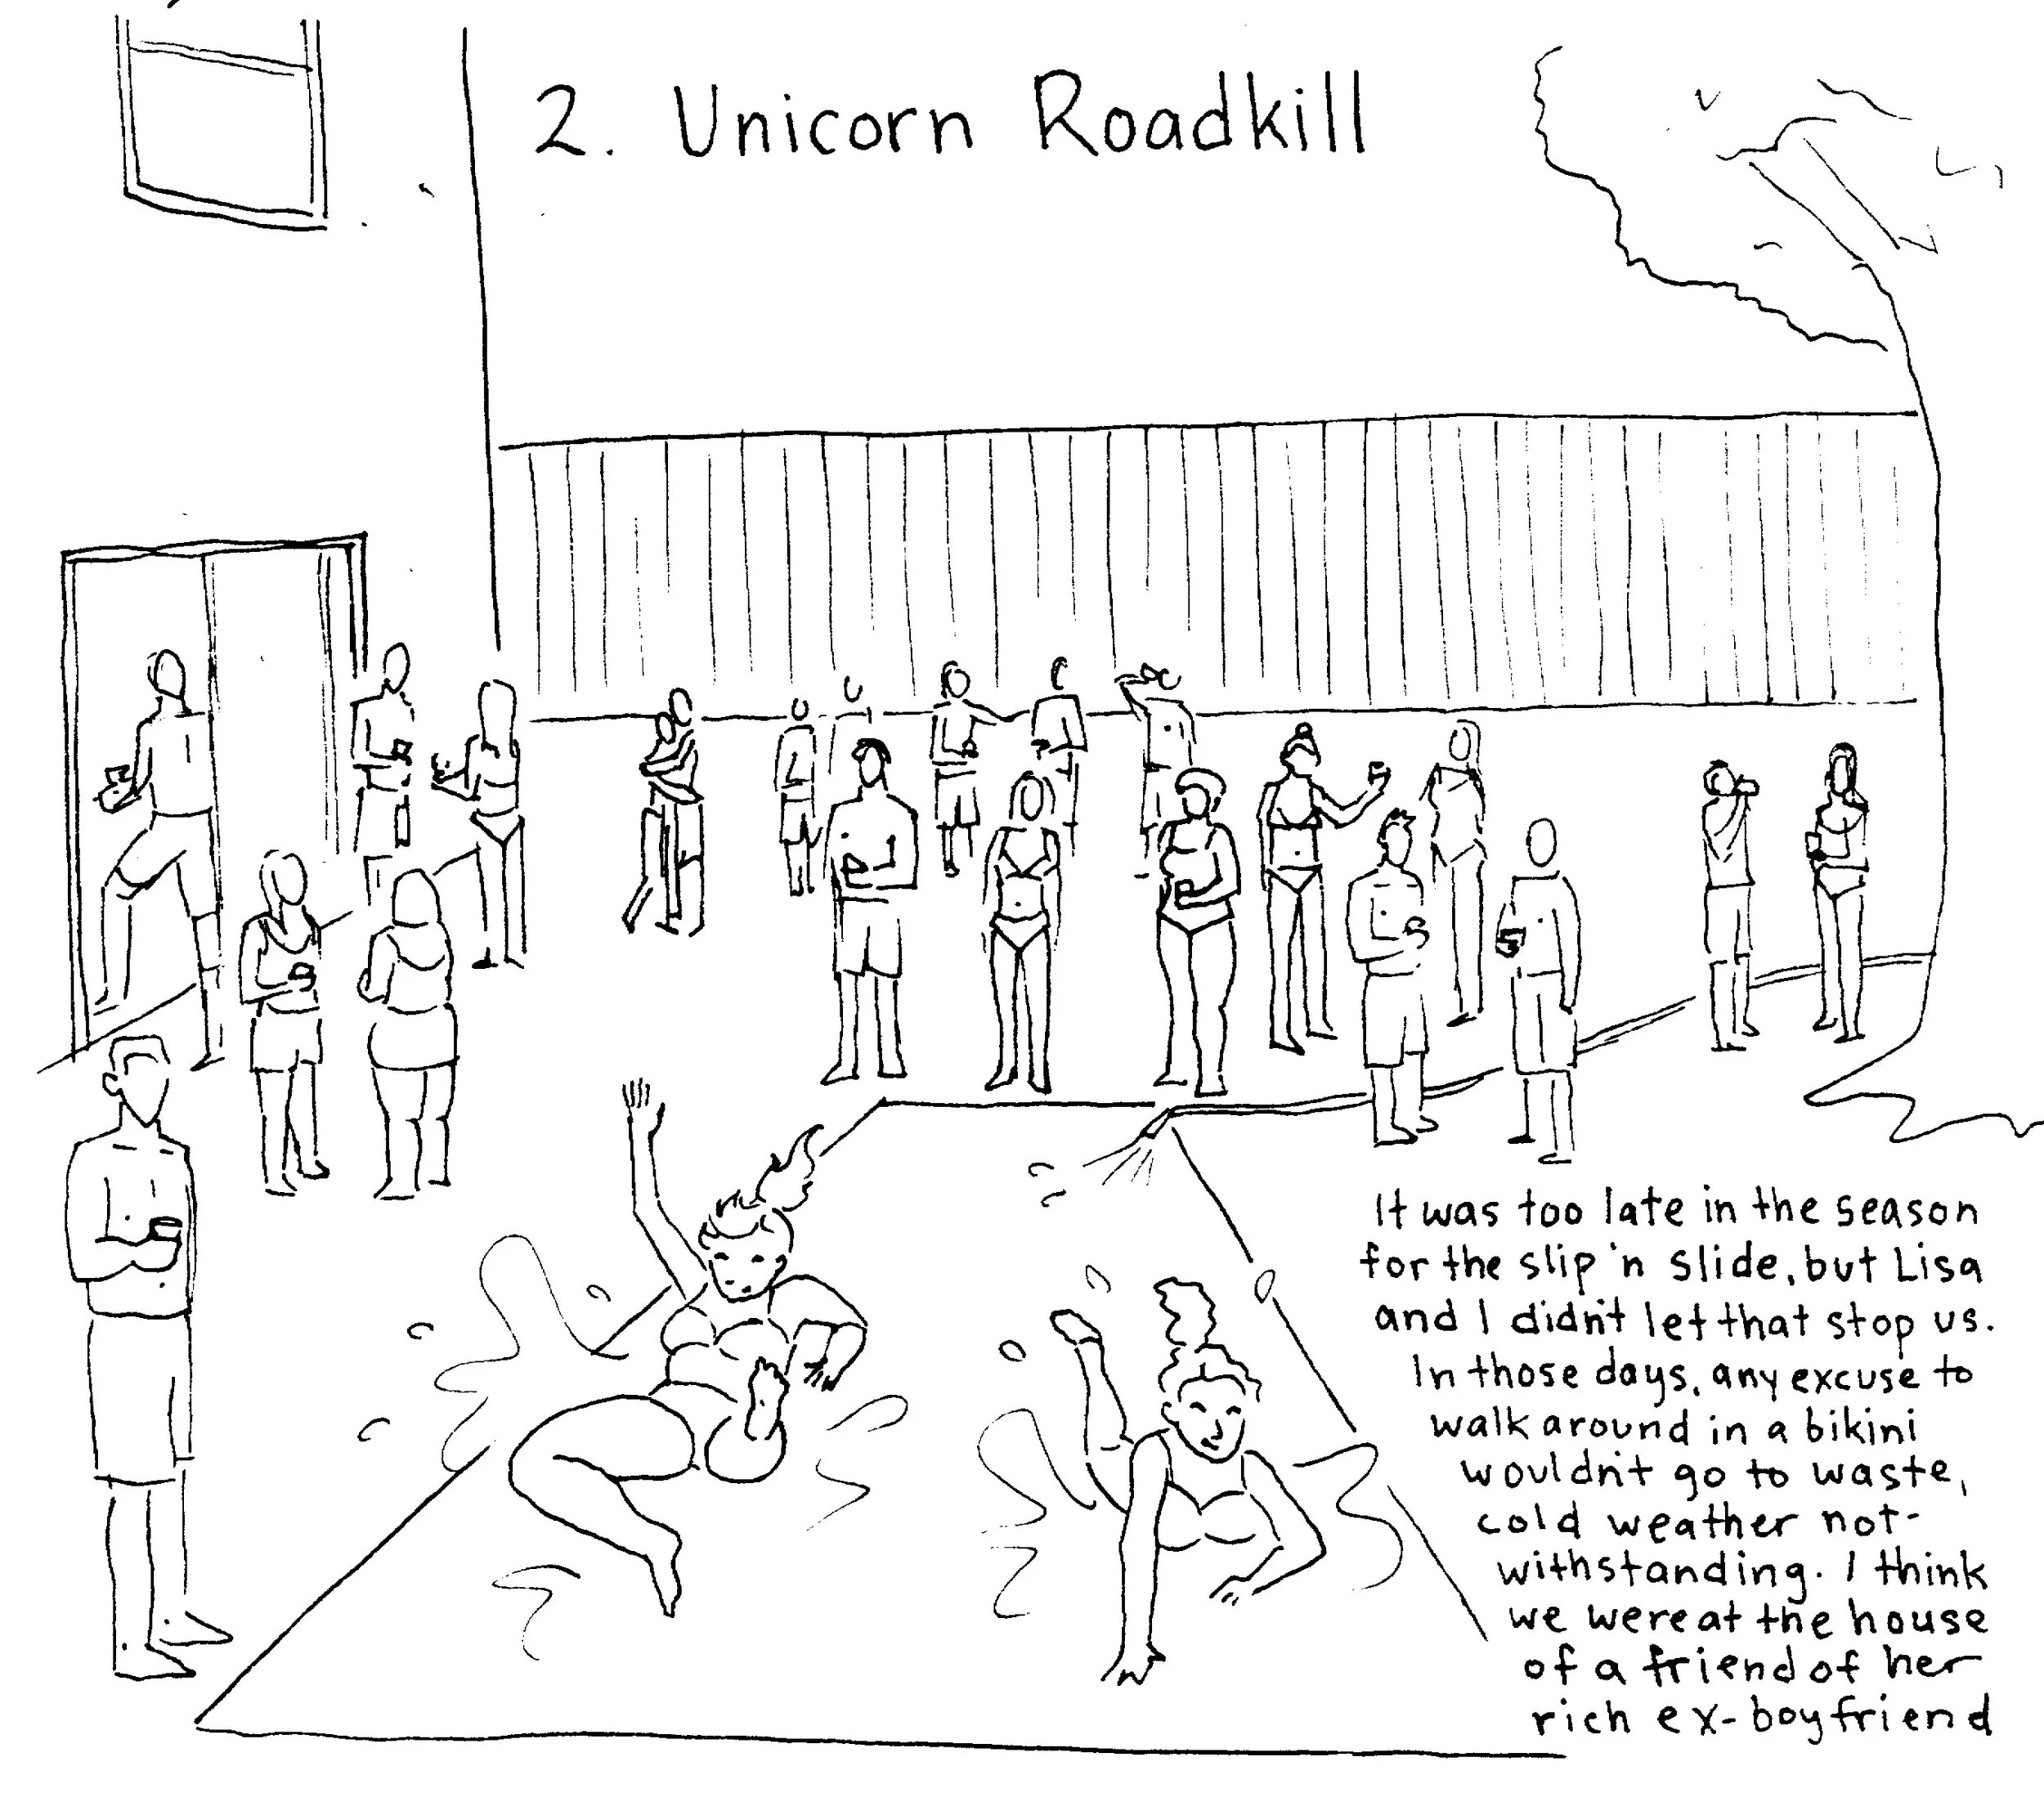 2. Unicorn Roadkill
It was too late in the season
for the slip 'n slide, but Lisa
and I didn't let that stop us.
In those days, any excuse to
walk around in a bikini
wouldn't go to waste,
cold weather not-
withstanding. I think
we were at the house
of a friend of her
rich ex-boyfriend